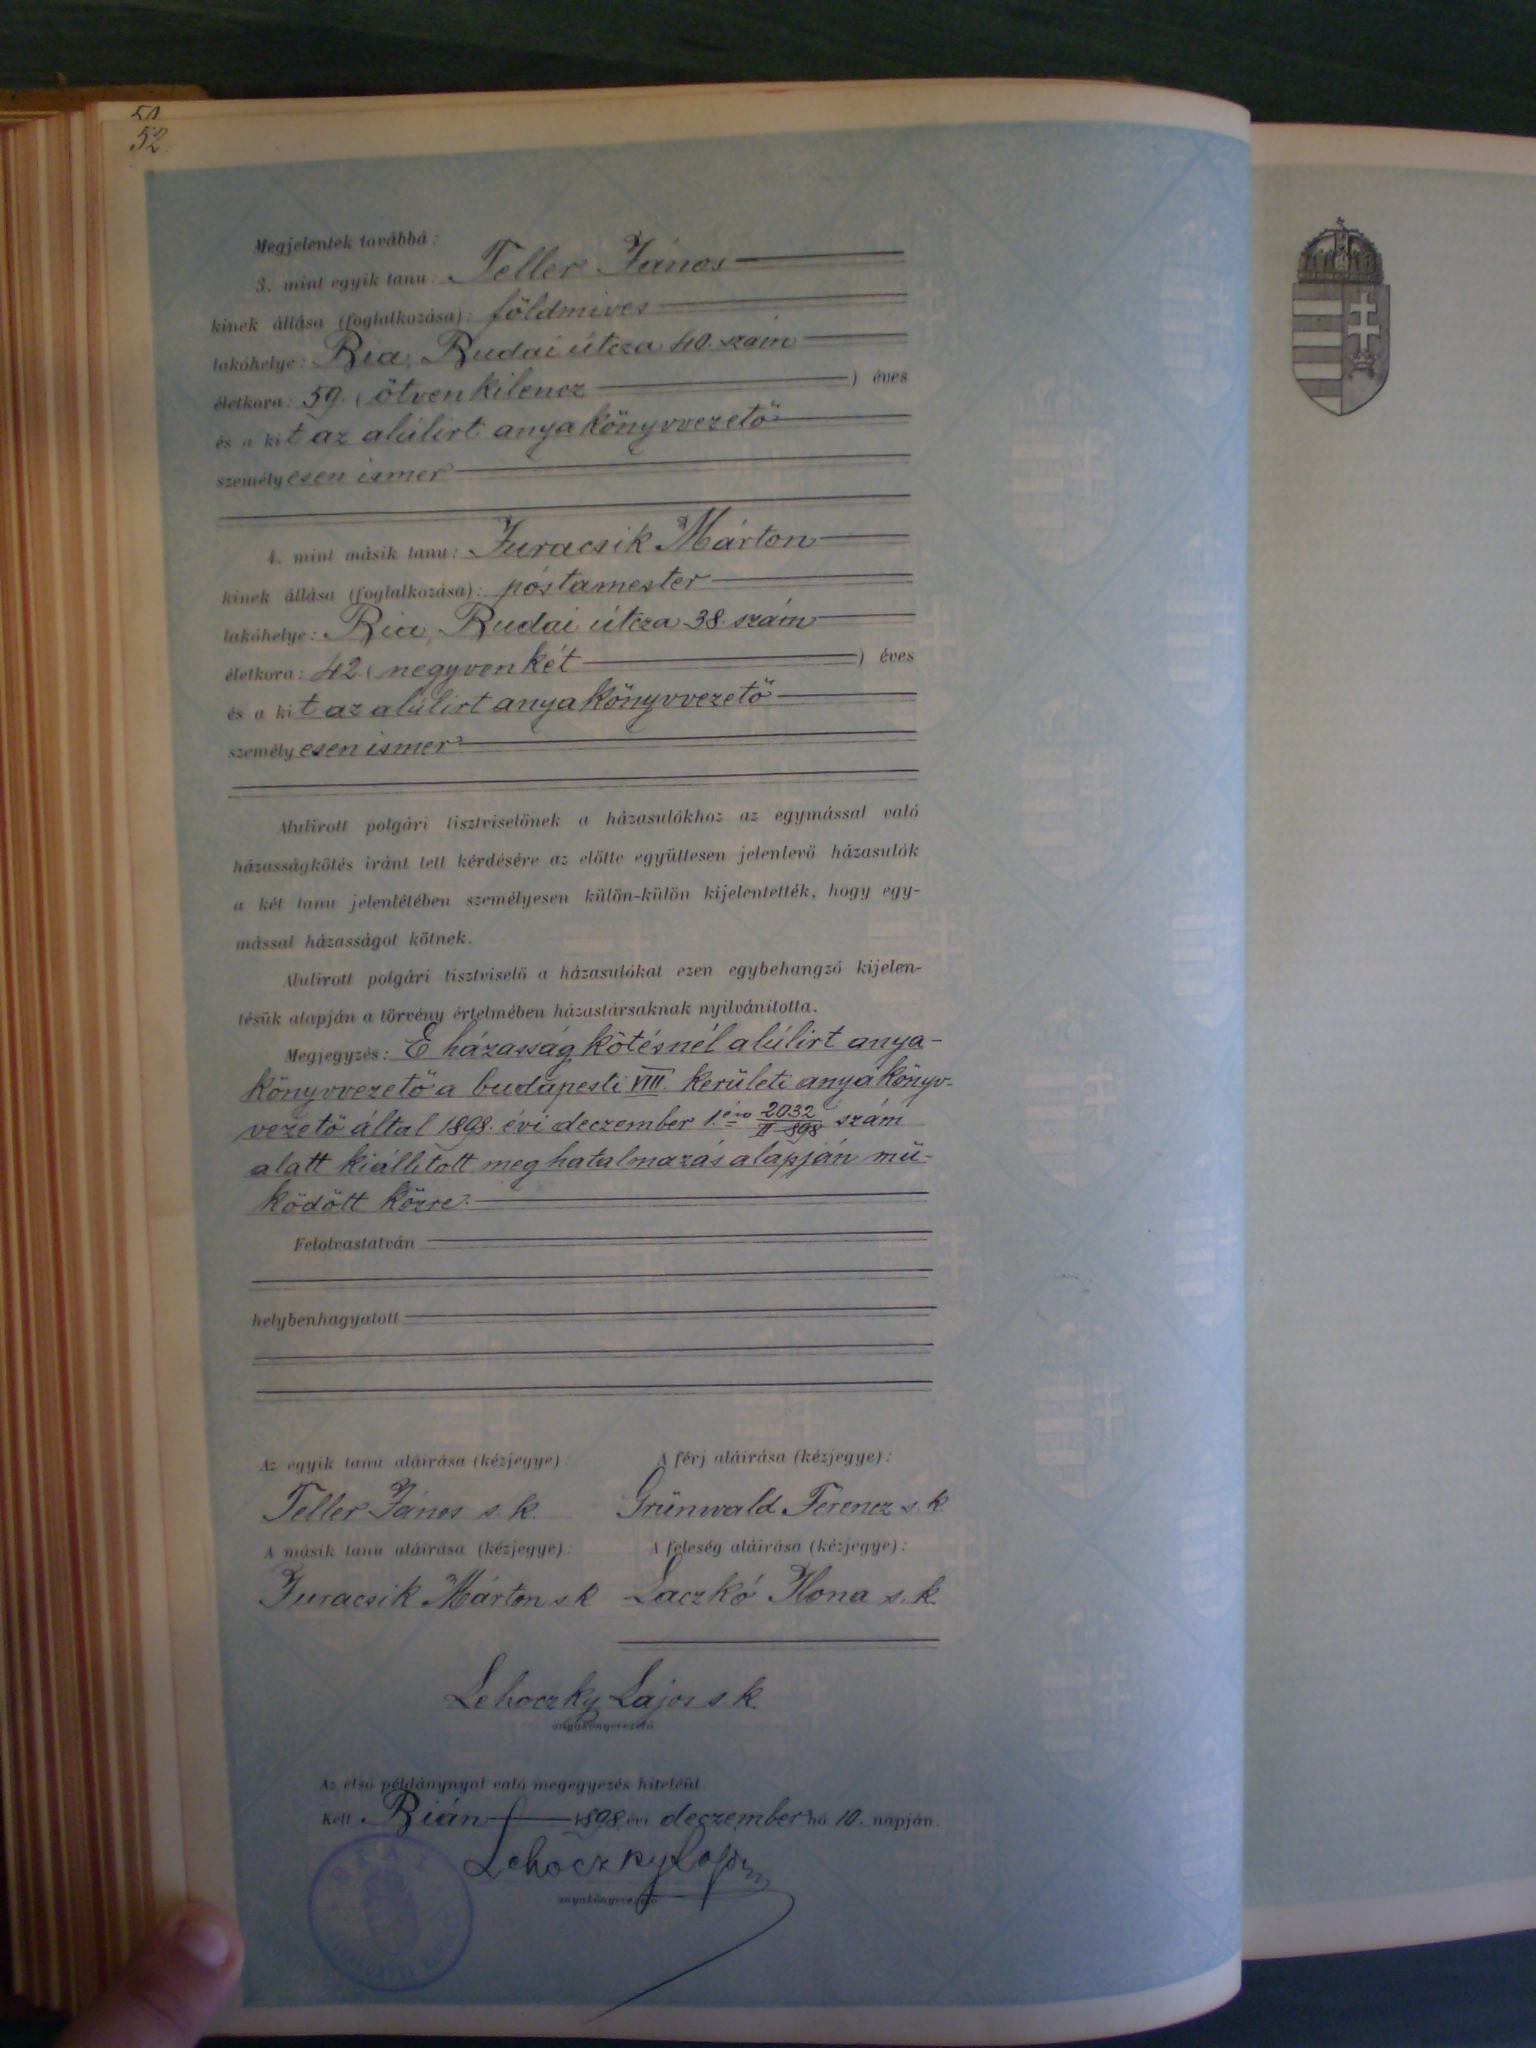 52
Megjelentek továbbá:
3. mint egyik tanu: Teller János
kinek állása (foglalkozása): földmives
lakóhelye: Bia, Budai útcza 40. szám
életkora: 59. (ötvenkilencz) éves
és a kit az alúlirt anyakönyvvezető
személyesen ismer
4. mint másik tanu: Juracsik Márton
kinek állása (foglalkozása): póstamester
lakóhelye: Bia, Budai útcza 38. szám
életkora: 42. (negyvenkét) éves
és a kit az alúlirt anyakönyvvezető
személyesen ismer
Alulirott polgári tisztviselőnek a házasulókhoz az egymással való
házasságkötés iránt tett kérdésére az előtte együttesen jelenlevő házasulók
a két tanu jelenlétében személyesen külön-külön kijelentették, hogy egy-
mással házasságot kötnek.
Alulirott polgári tisztviselő a házasulókat ezen egybehangzó kijelen-
tésük alapján a törvény értelmében házastársaknak nyilvánitotta.
Megjegyzés: E házasság kötésnél alúlirt anya-
könyvvezető a budapesti VIII. kerületi anyakönyv-
vezető által 1898. évi deczember 1.én 2032/II-898 szám
alatt kiállított meghatalmazás alapján mü-
ködött közre.
Felolvastatván
helybenhagyatott
Az egyik tanu aláirása (kézjegye): A férj aláirása (kézjegye):
Teller János s. k. Grünwald Ferencz s. k.
A másik tanu aláirása (kézjegye): A feleség aláirása (kézjegye):
Juracsik Márton s k Laczkó Ilona s. k.
Lehoczky Lajos s k.
anyakönyvvezető
Az első példánynyal való megegyezés hiteléül.
Kelt Bián 1898. évi deczember hó 10. napján.
Lehoczky Lajos
anyakönyvvezető